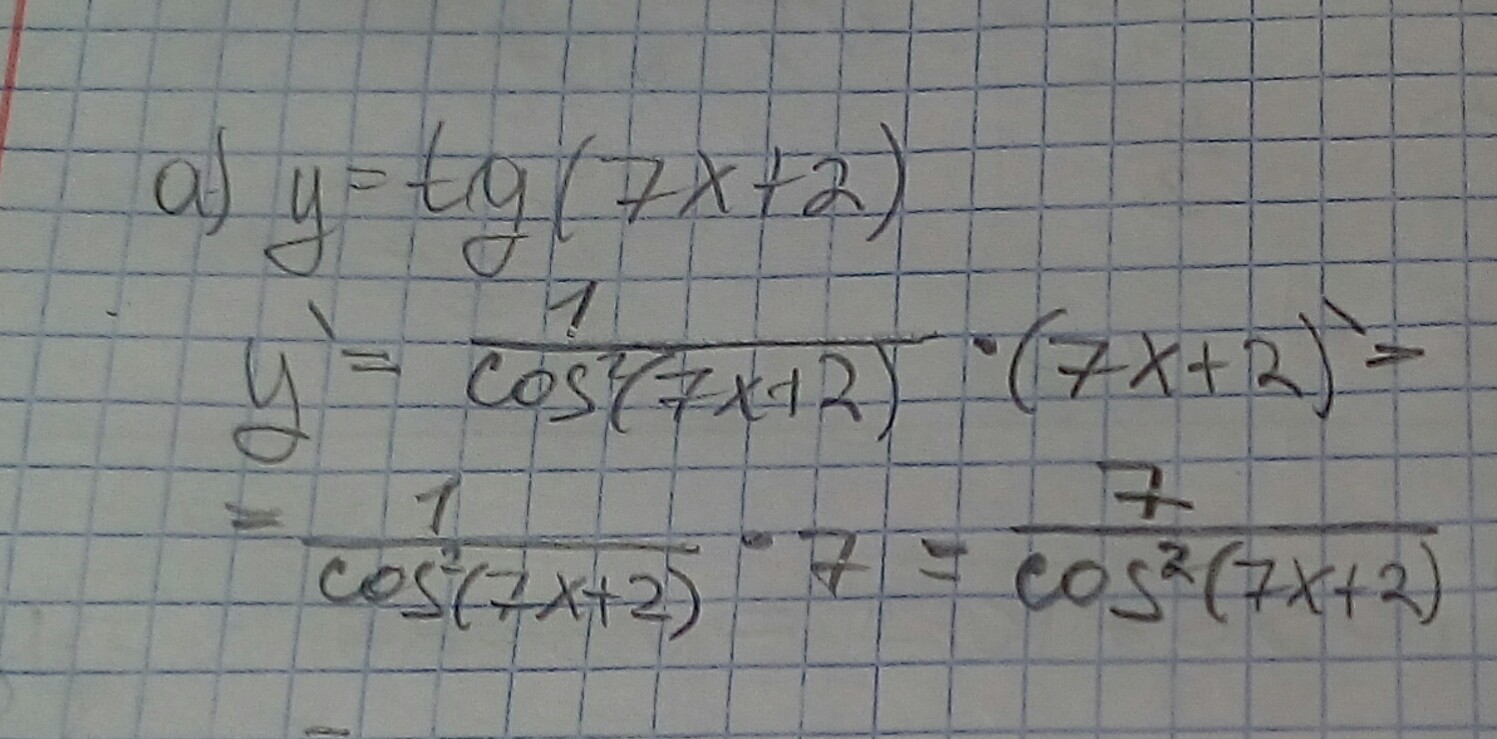 a) y = tg(7x+2)
y` = 1/cos²(7x+2) · (7x+2)` =
= 1/cos²(7x+2) · 7 = 7/cos²(7x+2)